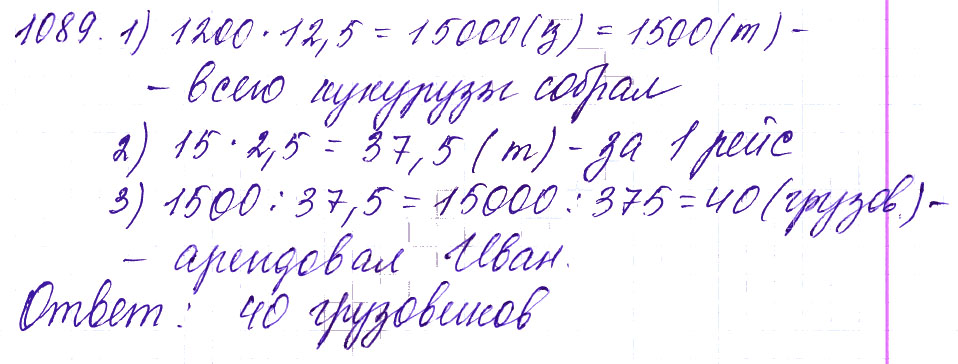 1089. 1) 1200 · 12,5 = 15000 (ц) = 1500 (т) -
- всего кукурузы собрал
2) 15 · 2,5 = 37,5 (т) - за 1 рейс
3) 1500 : 37,5 = 15000 : 375 = 40 (грузов.) -
- арендовал Иван.
Ответ: 40 грузовиков